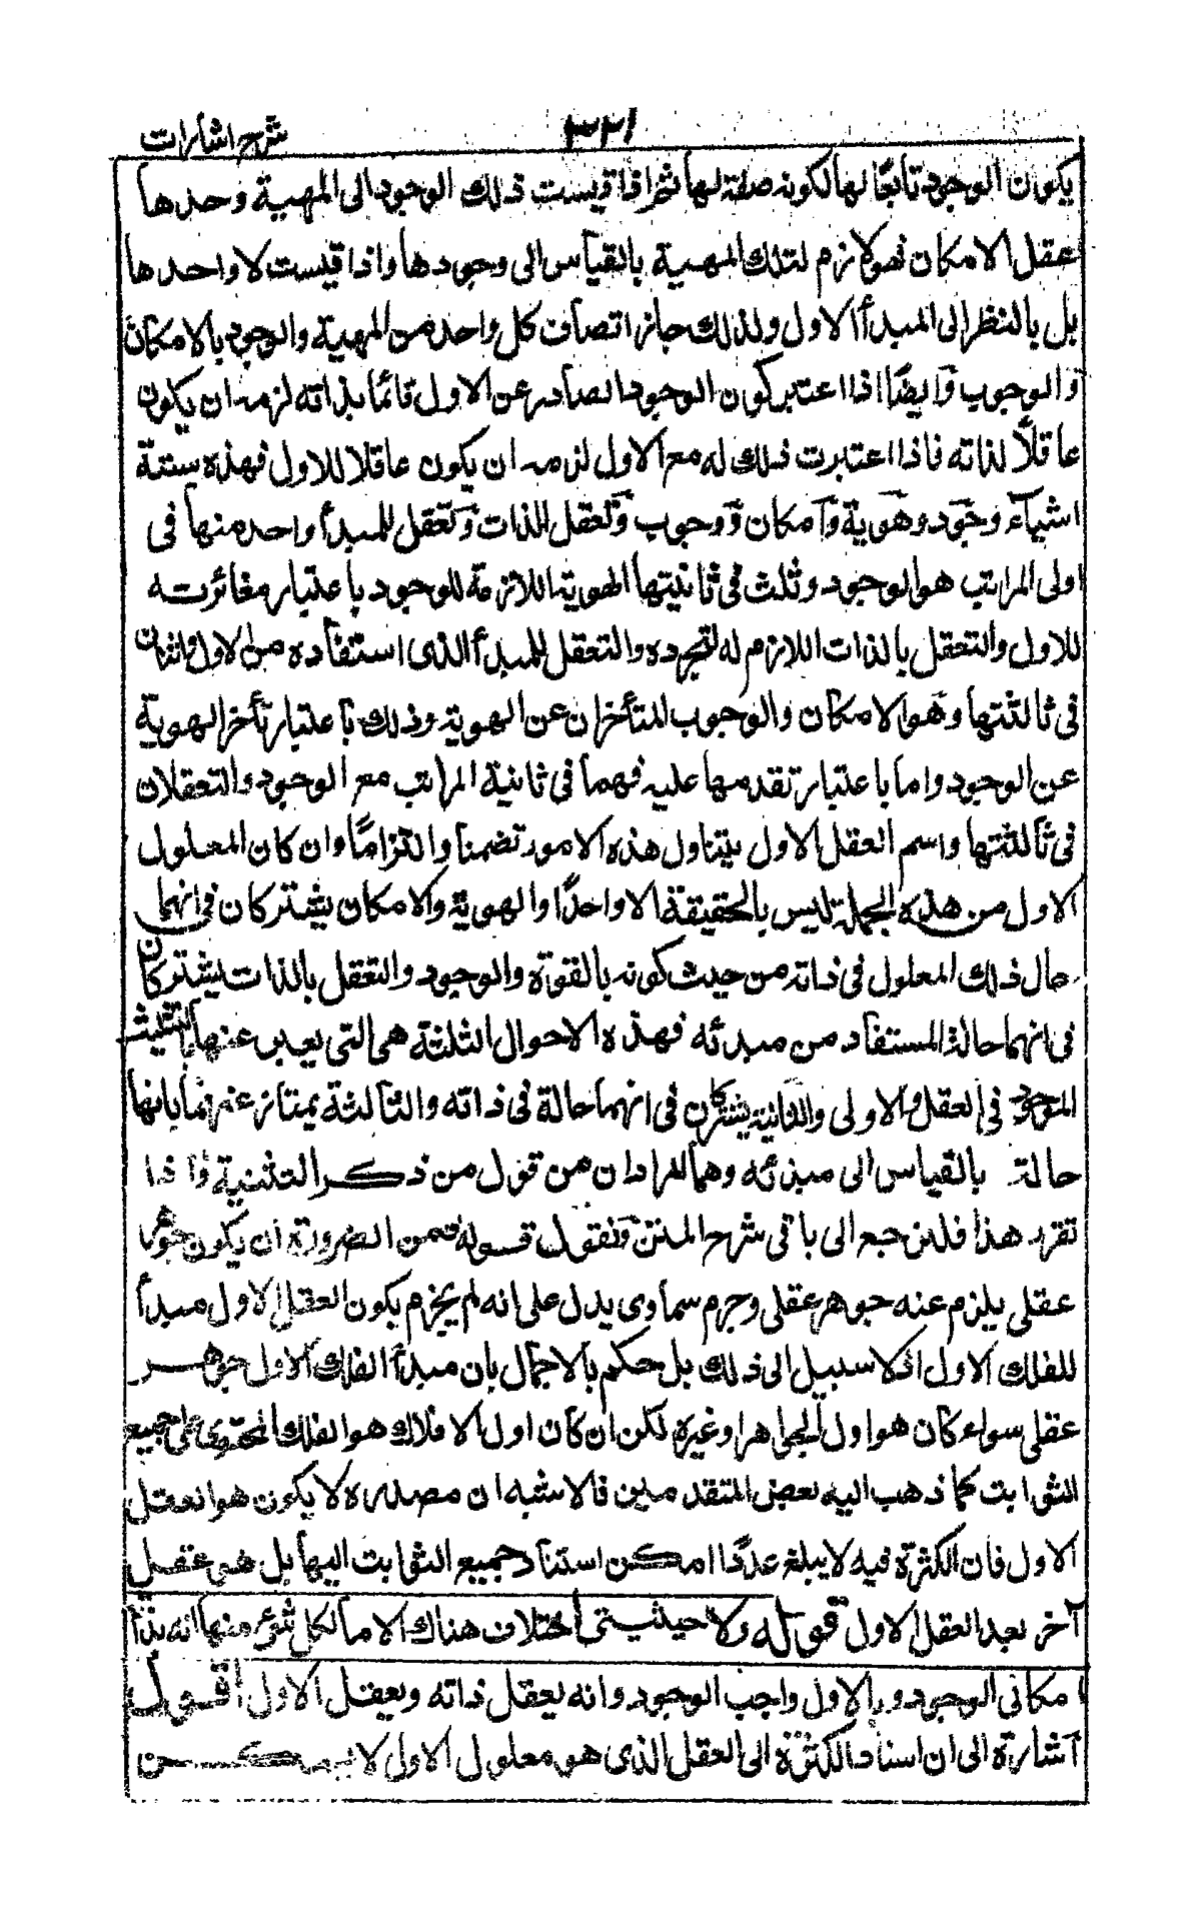 شرح اشارات
٣٢١
يكون الوجود تابعًا لها لكونه صفة لها ثم اذا قيست ذلك الوجود الى المهية وحدها
عقل الامكان فهو لازم لتلك المهية بالقياس الى وجودها واذا قيست لا واحدها
بل بالنظر الى المبدأ الاول ولذلك جاز اتصاف كل واحد من المهية والوجود بالامكان
والوجوب وايضًا اذا اعتبر كون الوجود الصادر عن الاول قائمًا بذاته لزمه ان يكون
عاقلاً لذاته فاذا اعتبرت ذلك له مع الاول لزمه ان يكون عاقلا للاول فهذه ستة
اشياء وجود وهوية وامكان ووجوب وتعقل للذات وتعقل للمبدأ واحد منها فى
اولى المراتب هو الوجود وثلث فى ثانيتها الهوية اللازمة للوجود باعتبار مغائرته
للاول والتعقل بالذات اللازم له لتجرده والتعقل للمبدأ الذى استفاده من الاول واثنان
فى ثالثتها وهو الامكان والوجوب المتأخران عن الهوية وذلك باعتبار تأخر الهوية
عن الوجود واما باعتبار تقدمها عليه فهما فى ثانية المراتب مع الوجود والتعقلان
فى ثالثتها واسم العقل الاول يتناول هذه الامور تضمنا والتزامًا وان كان المعلول
الاول من هذه الجملة ليس بالحقيقة الا واحدًا والهوية والامكان يشتركان فى انهما
حال ذلك المعلول فى ذاته من حيث كونه بالقوة والوجود والتعقل بالذات يشتركان
فى انهما حالة المستفاد من مبدئه فهذه الاحوال الثلثة هى التى يعبر عنها بالتثليث
الموجود فى العقل والاولى والثانية يشتركان فى انهما حالة فى ذاته والثالثة يمتاز عنهما بانها
حالة بالقياس الى مبدئه وهما المرادان من قول من ذكر التثنية واذا
تقرر هذا فلنرجع الى باقى شرح المتن فنقول قوله فمن الضرورة ان يكون جوهر
عقلى يلزم عنه جوهر عقلى وجرم سماوى يدل على انه لم يجزم بكون العقل الاول مبدأ
للفلك الاول اذ لا سبيل الى ذلك بل حكم بالاجمال بان مبدأ الفلك الاول جوهر
عقلى سواء كان هو اول الجواهر او غيره لكن ان كان اول الافلاك هو الفلك المحتوى على جميع
الثوابت كما ذهب اليه بعض المتقدمين فالاشبه ان مصدره لا يكون هو العقل
الاول فان الكثرة فيه لا يبلغ عددًا امكن استناد جميع الثوابت اليها بل هو عقل
آخر بعد العقل الاول قوله ولا حيثيتى اختلاف هناك الا ما لكل شئ منها انه بذا
مكانى الوجود وبالاول واجب الوجود وانه يعقل ذاته ويعقل الاول اقول
اشارة الى ان اسناد الكثرة الى العقل الذى هو معلول الاول لا يمكن